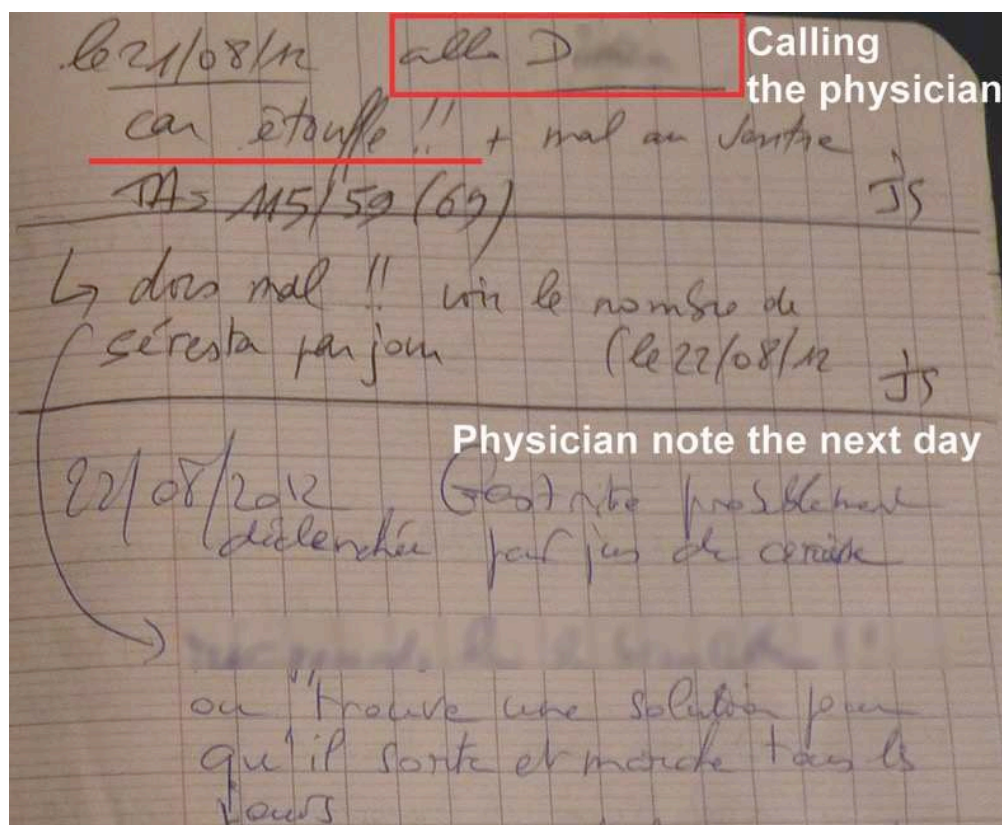 le 21/08/12 allo D
Calling
the physician
car étouffe !! + mal au ventre
TA= 115/59 (69) JS
↳ dors mal !! voir le nombre de
séresta par jour (le 22/08/12 JS
Physician note the next day
22/08/2012 Gastrite probablement
déclenchée par jus de cerise
ou trouve une solution pour
qu'il sorte et marche tous les
jours